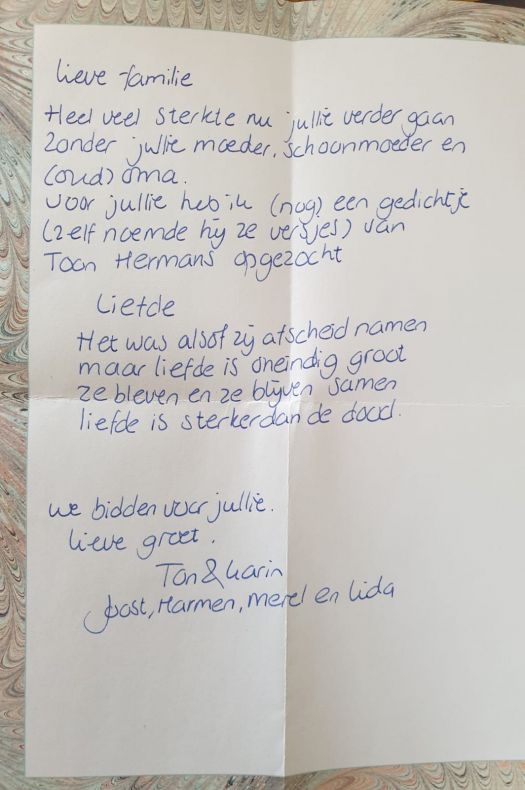 Lieve familie
Heel veel sterkte nu jullie verder gaan
zonder jullie moeder, schoonmoeder en
(oud) oma.
Voor jullie heb ik (nog) een gedichtje
(zelf noemde hij ze versjes) van
Toon Hermans opgezocht
Liefde
Het was alsof zij afscheid namen
maar liefde is oneindig groot
ze bleven en ze blijven samen
liefde is sterker dan de dood.
We bidden voor jullie.
Lieve groet.
Ton & Karin
Joost, Harmen, Merel en Lida